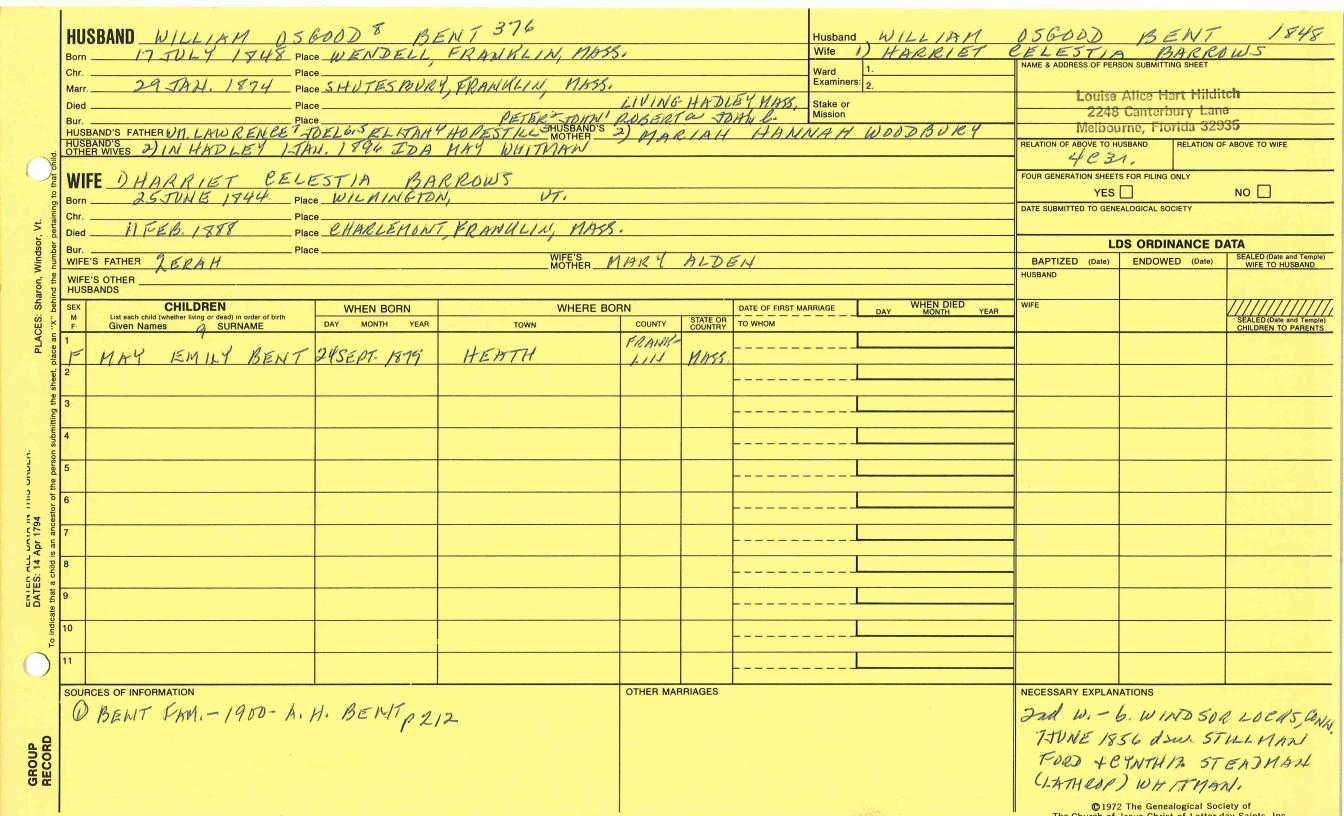 HUSBAND WILLIAM OSGOOD 8 BENT 376
Born 17 JULY 1848 Place WENDELL, FRANKLIN, MASS.
Chr. Place
Marr. 29 JAN. 1874 Place SHUTESBURY, FRANKLIN, MASS.
Died Place LIVING HADLEY MASS,
Bur. Place PETER2 JOHN1 ROBERTa JOHN
HUSBAND'S FATHER WM. LAWRENCE7 JOEL ELIJAH HOPESTILL
HUSBAND'S MOTHER 2) MARIAH HANNAH WOODBURY
HUSBAND'S OTHER WIVES 2) IN HADLEY 1 JAN. 1896 IDA MAY WHITMAN
Husband WILLIAM OSGOOD BENT 1848
Wife 1) HARRIET CELESTIA BARROWS
Ward Examiners: 1.
2.
Stake or Mission
NAME & ADDRESS OF PERSON SUBMITTING SHEET
Louise Alice Hart Hilditch
2248 Canterbury Lane
Melbourne, Florida 32935
RELATION OF ABOVE TO HUSBAND RELATION OF ABOVE TO WIFE
4C3r.
FOUR GENERATION SHEETS FOR FILING ONLY
YES NO
DATE SUBMITTED TO GENEALOGICAL SOCIETY
WIFE 1) HARRIET CELESTIA BARROWS
Born 25 JUNE 1844 Place WILMINGTON, VT.
Chr. Place
Died 11 FEB. 1888 Place CHARLEMONT, FRANKLIN, MASS.
Bur. Place
WIFE'S FATHER ZERAH WIFE'S MOTHER MARY ALDEN
WIFE'S OTHER HUSBANDS
LDS ORDINANCE DATA
BAPTIZED (Date) ENDOWED (Date) SEALED (Date and Temple) WIFE TO HUSBAND
HUSBAND
WIFE
SEALED (Date and Temple) CHILDREN TO PARENTS
SEX M F
CHILDREN
List each child (whether living or dead) in order of birth
Given Names 9 SURNAME
WHEN BORN
DAY MONTH YEAR
WHERE BORN
TOWN COUNTY STATE OR COUNTRY
DATE OF FIRST MARRIAGE
TO WHOM
WHEN DIED
DAY MONTH YEAR
1 F MAY EMILY BENT 24 SEPT. 1879 HEATH FRANKLIN MASS.
2
3
4
5
6
7
8
9
10
11
SOURCES OF INFORMATION
① BENT FAM. - 1900 - A. H. BENT p 212
OTHER MARRIAGES
NECESSARY EXPLANATIONS
2nd w. - b. WINDSOR LOCKS, CONN.
7 JUNE 1856 dau. STILLMAN
FORD + CYNTHIA STEADMAN
(LATHROP) WHITMAN.
©1972 The Genealogical Society of
The Church of Jesus Christ of Latter-day Saints, Inc.
PLACES: Sharon, Windsor, Vt.
ENTER ALL DATA IN THIS ORDER:
DATES: 14 Apr 1794
To indicate that a child is an ancestor of the person submitting the sheet, place an "X" behind the number pertaining to that child.
GROUP RECORD